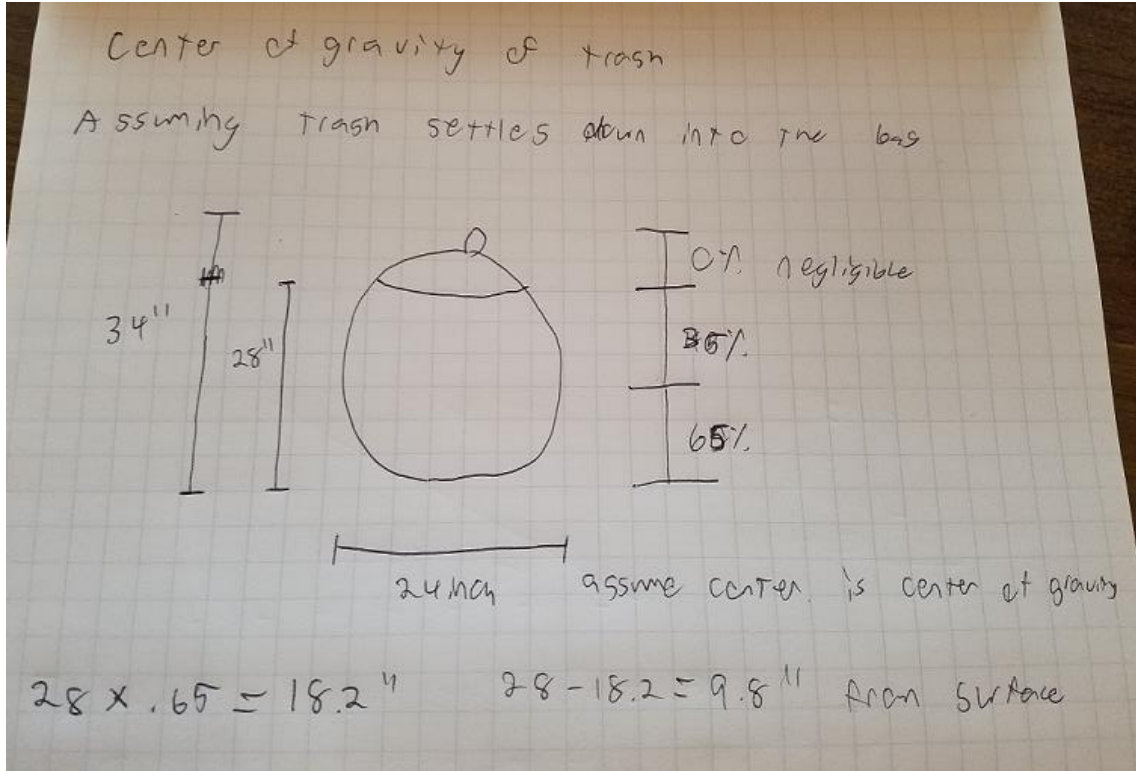 Center of gravity of trash
Assuming trash settles down into the bag
0% negligible
34"
28"
35%
65%
24 inch assume center is center of gravity
28 x .65 = 18.2" 28 - 18.2 = 9.8" from surface